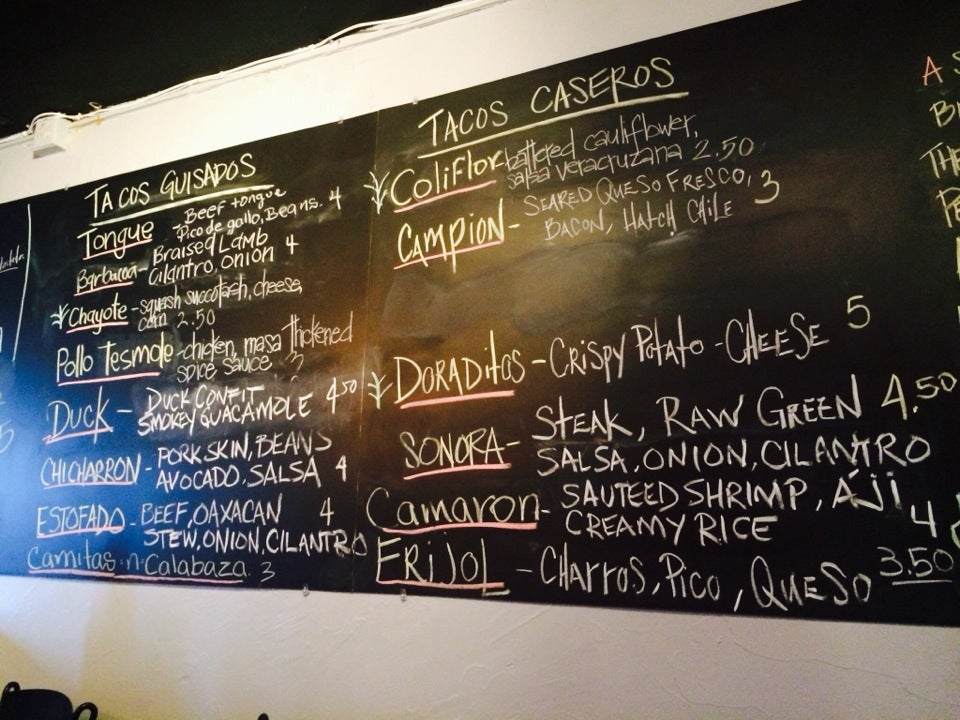 TACOS GUISADOS
Beef tongue
Tongue Pico de gallo, Beans. 4
Braised Lamb
Barbacoa - Cilantro, onion 4
Chayote - squash succotash, cheese,
corn 2.50
Pollo Tesmole - chicken, masa thickened
spice sauce 3
Duck - DUCK CONFIT
SMOKEY GUACAMOLE 4.50
CHICHARRON - PORK SKIN, BEANS
AVOCADO, SALSA 4
ESTOFADO - BEEF, OAXACAN 4
STEW, ONION, CILANTRO
Carnitas · n · Calabaza 3
TACOS CASEROS
Coliflor battered cauliflower,
salsa veracruzana 2.50
CAMPION - SEARED QUESO FRESCO, 3
BACON, HATCH CHILE
DORADITOS - CRISPY POTATO - CHEESE 5
SONORA - STEAK, RAW GREEN 4.50
SALSA, ONION, CILANTRO
Camaron - SAUTEED SHRIMP, AJí
CREAMY RICE 4
FRIJOL - CHARROS, PICO, QUESO 3.50
A S
THE